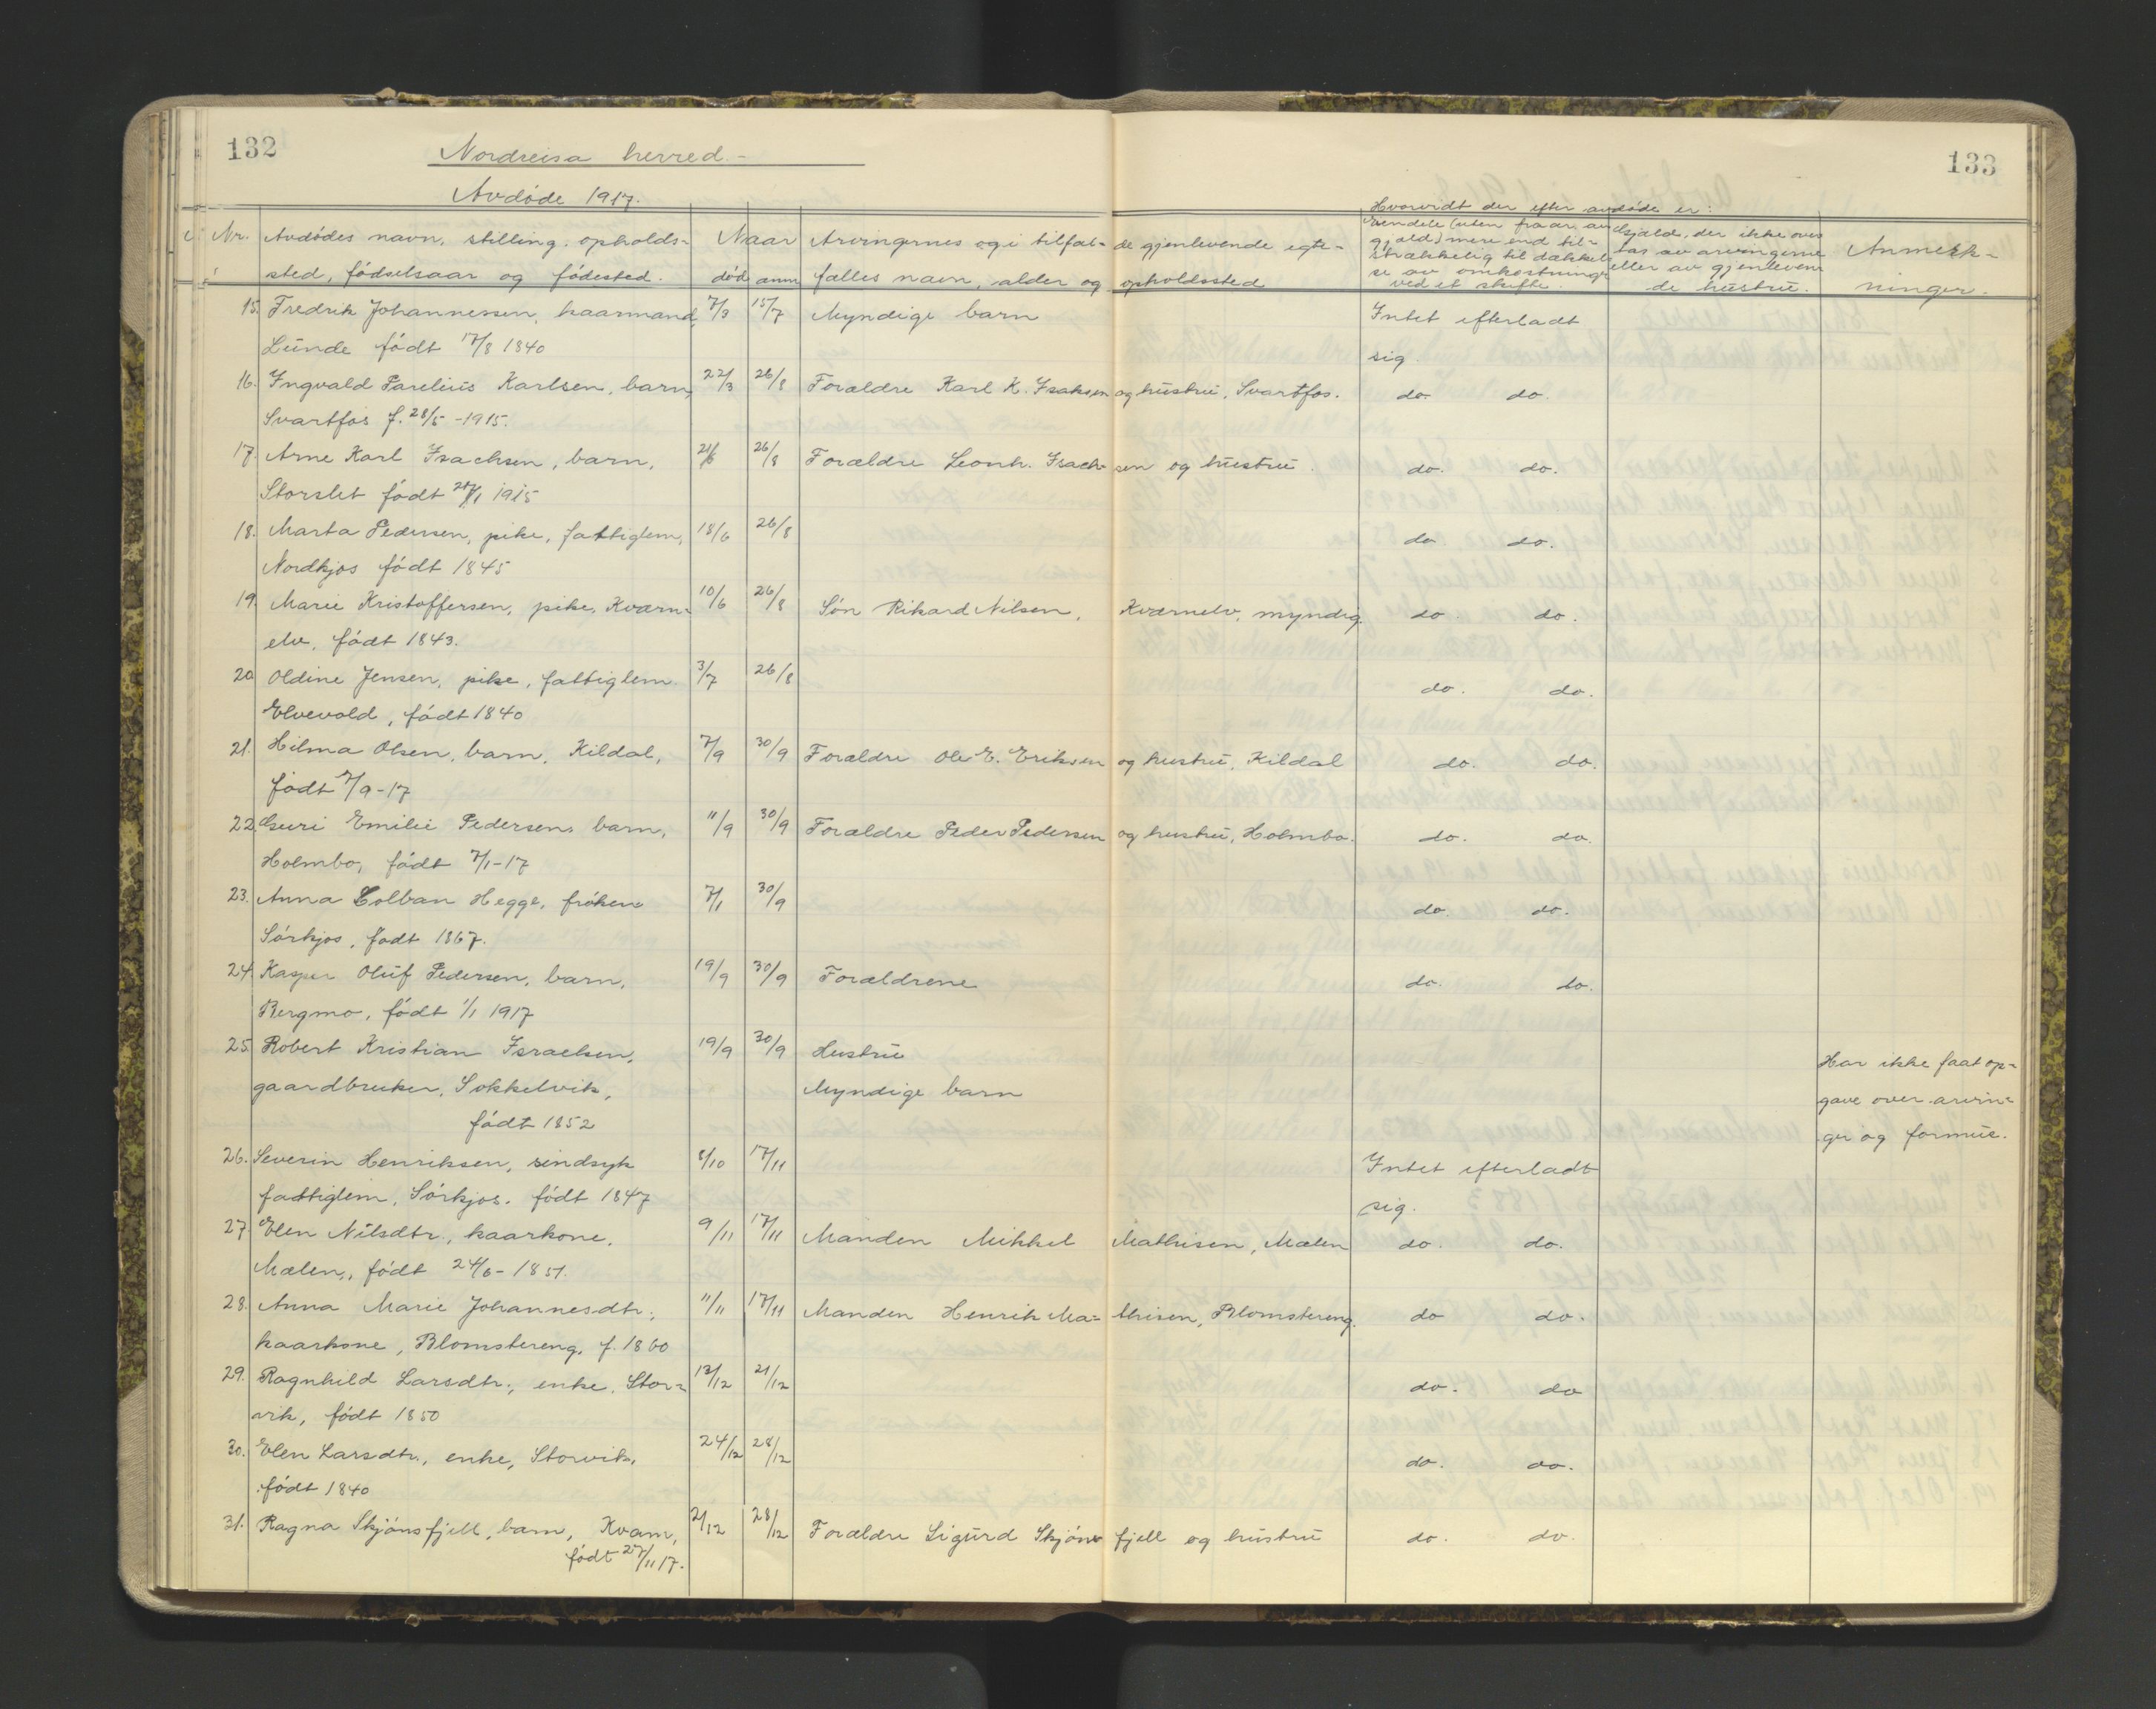 132
Nordreisa herred.-
Avdöde 1917.
133
Hvorvidt der efter avdöde er:
Nr. Avdödes navn, stilling, opholds- Naar Arvingernes og i tilfæl- de gjenlevende egte-
sted, födselsaar og födested. död anm fælles navn, alder og opholdssted
Eiendele (uten fradr. av
gjæld) mere end til-
strækkelig til dækkel-
se av omkostninge
ved et skifte.
Gjæld, der ikke over
tas av arvingerne
eller av gjenleven
de hustru.
Anmerk-
ninger.
15. Fredrik Johannessen, kaarmand, 7/3 15/7 Myndige barn Intet efterladt
Lunde födt 17/8 1840 sig.
16. Ingvald Parelius Karlsen, barn, 22/3 26/8 Forældre Karl K. Isaksen og hustru, Svartfos. do. do.
Svartfos f. 28/5 -1915.
17. Arne Karl Isachsen, barn, 21/6 26/8 Forældre Leonh. Isach- sen og hustru. do. do.
Storslet födt 1915
18. Marta Pedersen, pike, fattiglem, 18/6 26/8 do. do.
Nordkjos födt 1845
19. Marie Kristoffersen, pike, Kværn- 10/6 26/8 Sön Rikard Nilsen, Kværnelv, myndig. do. do.
elv, födt 1843.
20. Oldine Jensen, pike, fattiglem. 3/7 26/8 do. do.
Elvevold, födt 1840
21. Hilma Olsen, barn, Kildal, 7/9 30/9 Forældre Ole E. Eriksen og hustru, Kildal do. do.
födt 7/9-17
22. Guri Emilie Pedersen, barn, 11/9 30/9 Forældre Peder Pedersen og hustru, Holmbo. do. do.
Holmbo, födt 7/1-17
23. Anna Colban Hegge, fröken 7/1 30/9 do. do.
Sörkjos, födt 1867.
24. Kasper Oluf Pedersen, barn, 19/9 30/9 Forældrene do. do.
Bergmo, födt 1/1 1917
25. Robert Kristian Israelsen, 19/9 30/9 Hustru Har ikke faat op-
gaardbruker, Sokkelvik, Myndige barn gave over arvin-
födt 1852 ger og formue.
26. Severin Henriksen, sindsyk 8/10 17/11 Intet efterladt
fattiglem, Sörkjos. födt 1847 sig.
27. Elen Nilsdtr., kaarkone, 9/11 17/11 Manden Mikkel Mathisen, Mælen do. do.
Mælen, födt 24/6-1851.
28. Anna Marie Johannesdtr., 11/11 17/11 Manden Henrik Ma- thisen, Blomstereng. do do.
kaarkone, Blomstereng, f. 1860
29. Ragnhild Larsdtr., enke, Stor- 13/12 21/12 do. do
vik, födt 1850
30. Elen Larsdtr., enke, Storvik, 24/12 28/12 do. do.
födt 1840
31. Ragna Skjönsfjell, barn, Kvam, 21/12 28/12 Forældre Sigurd Skjöns fjell og hustru do. do.
födt 27/11 17.